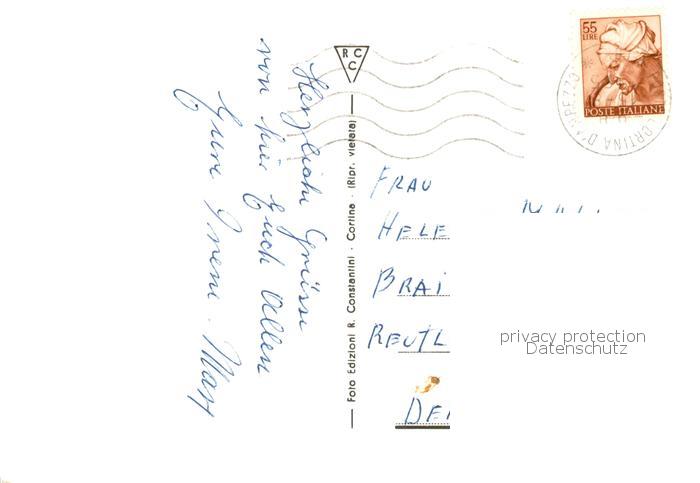 Herzlichi Grüsse
von hür Euch Allen
Eure Irene.
R C
C
Foto Edizioni R. Constantini - Cortina - (Ripr. vietata)
55
LIRE
POSTE ITALIANE
CORTINA D'AMPEZZO
FRAU
HELE
BRAI
REUTL
DE
privacy protection
Datenschutz